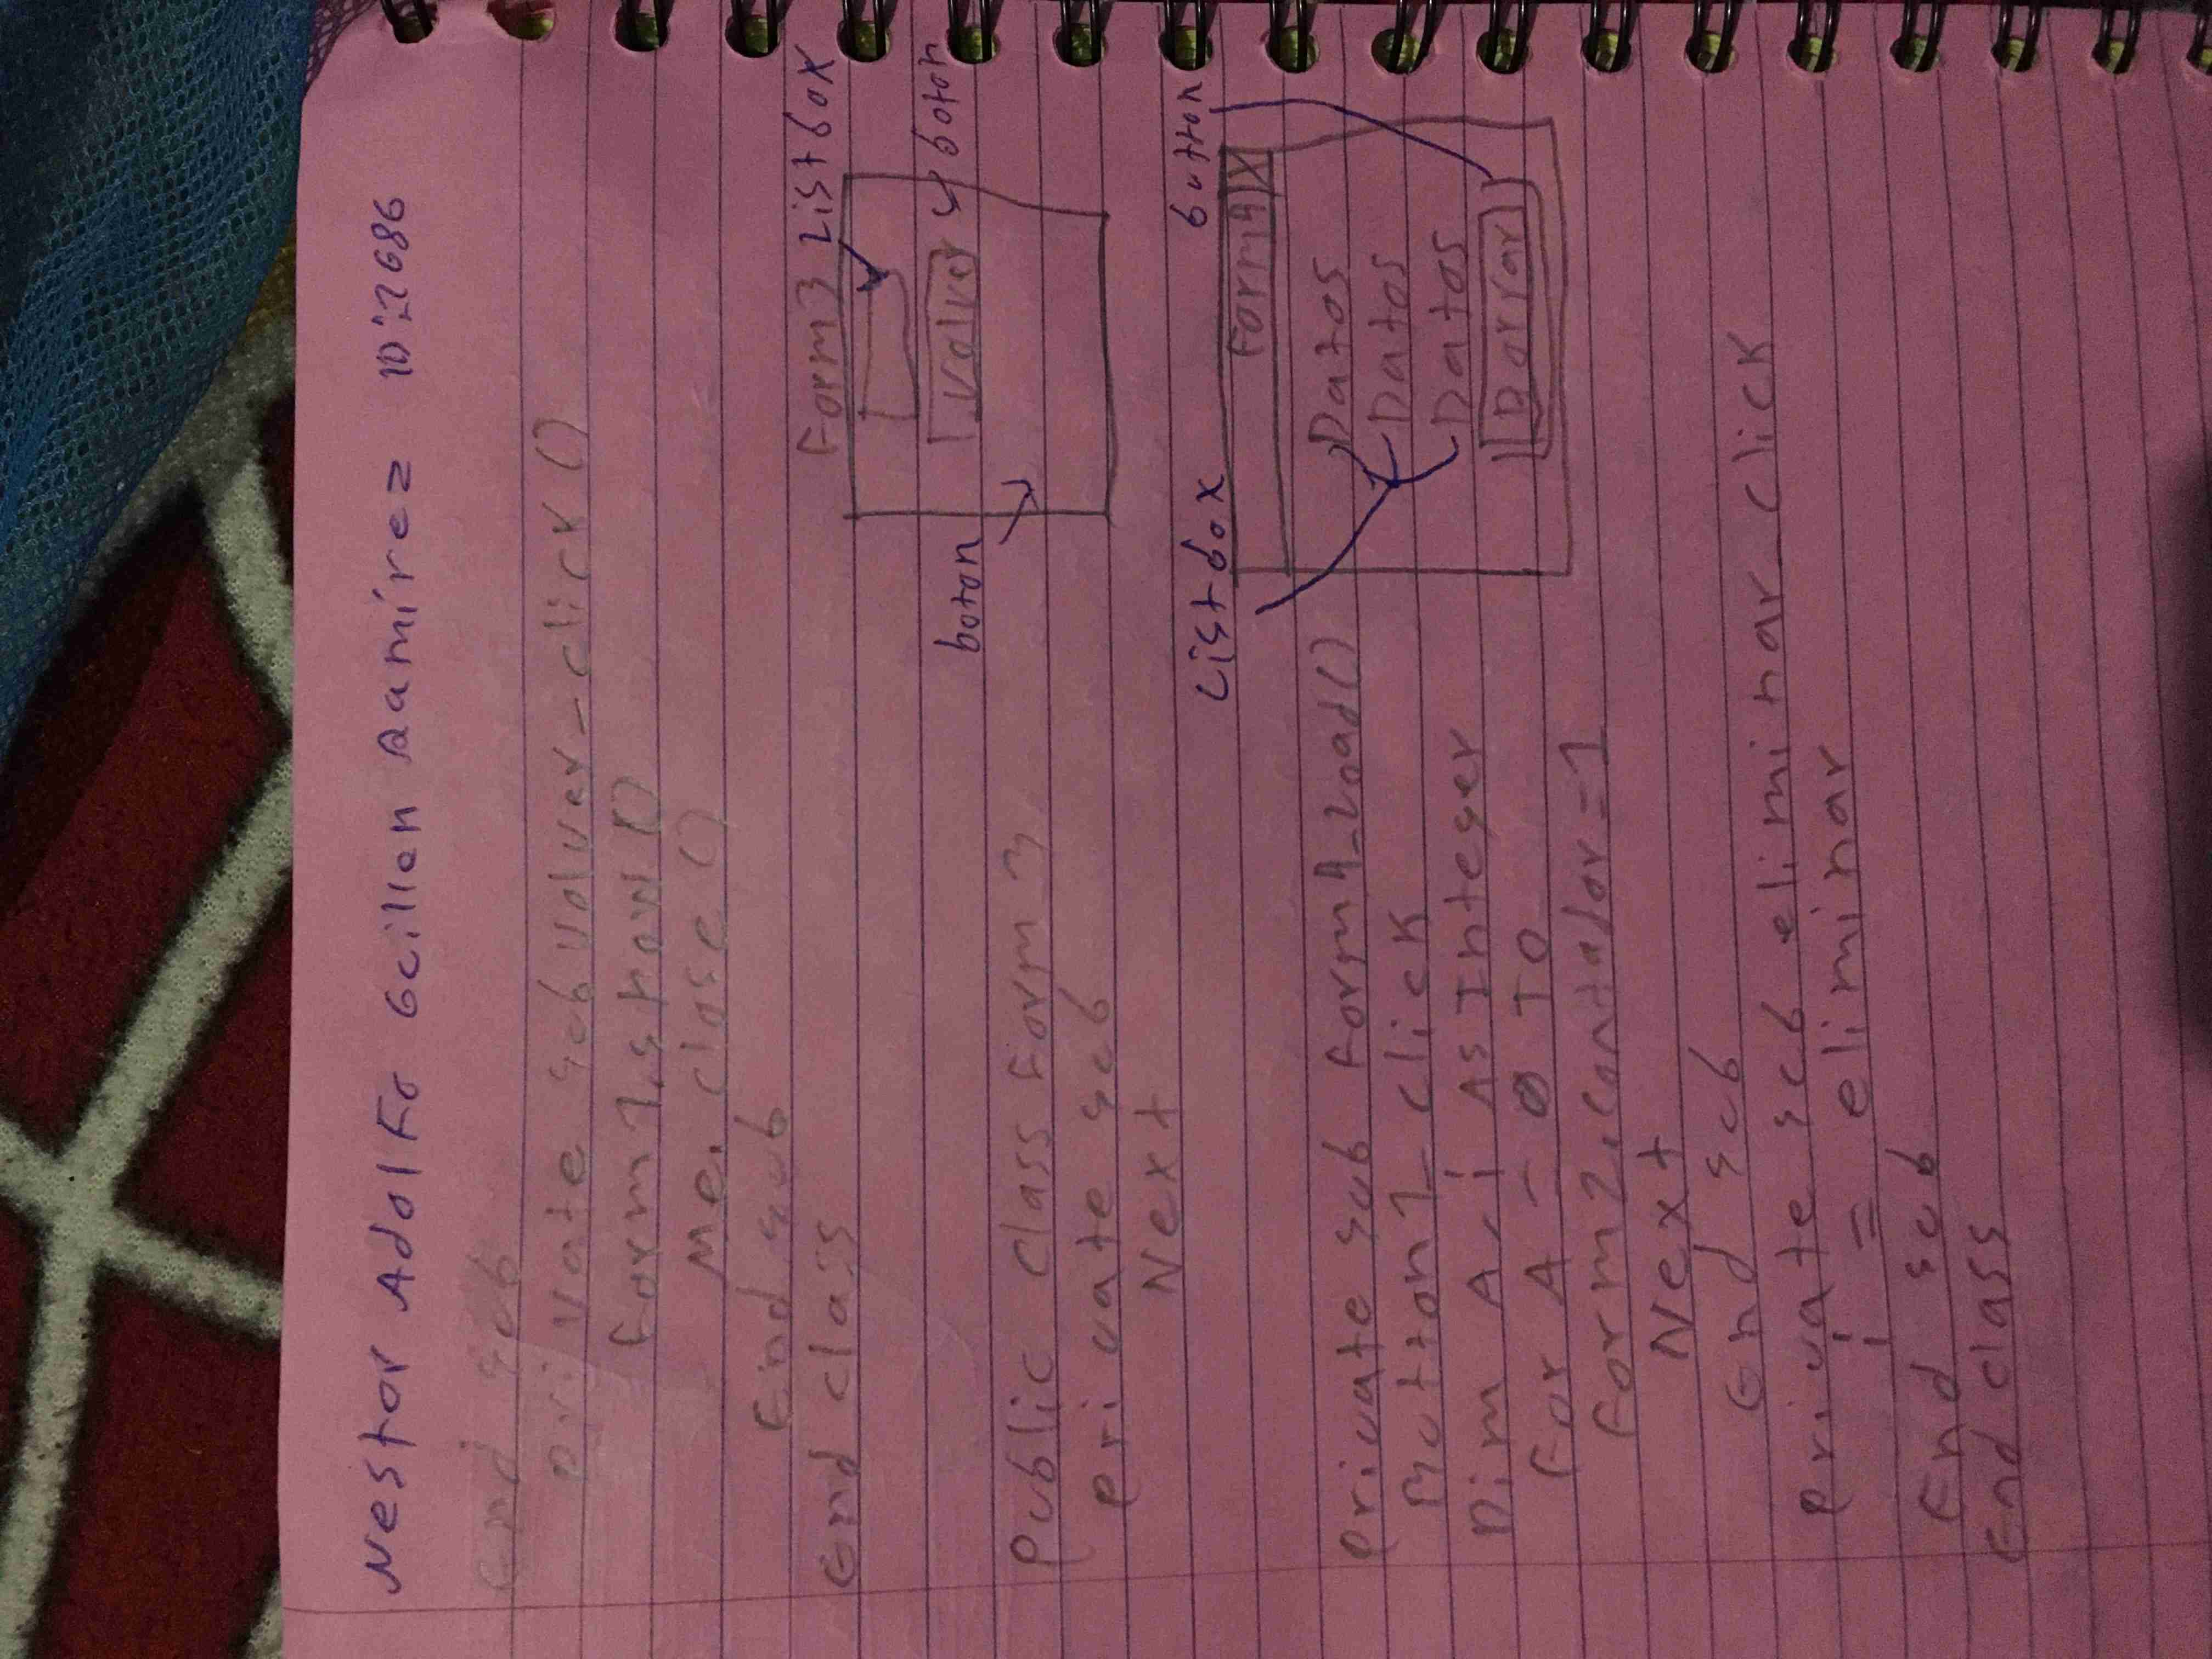 Nestor Adolfo Gcillen Ramirez ID:22686
End sub
Private sub Volver_click ()
Form1.show ()
Me.close ()
End sub
End class
Form3 Listbox
Volver
boton
boton
Public class form 3
Private sub
Next
Listbox button
Form4 X
Datos
Datos
Datos
Borrar
Private sub form4_load()
Button1_click
Dim A, i As Integer
For A = 0 TO
Form2.contador=1
Next
End sub
Private sub eliminar_click
i = eliminar
End sub
End class